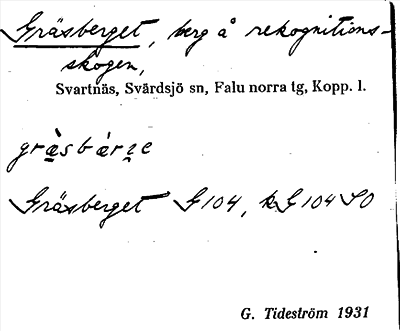 Gräsberget, berg å rekognitions-
skogen,
Svartnäs, Svärdsjö sn, Falu norra tg, Kopp. l.
Gräsberget G104, G104 SO
G. Tideström 1931